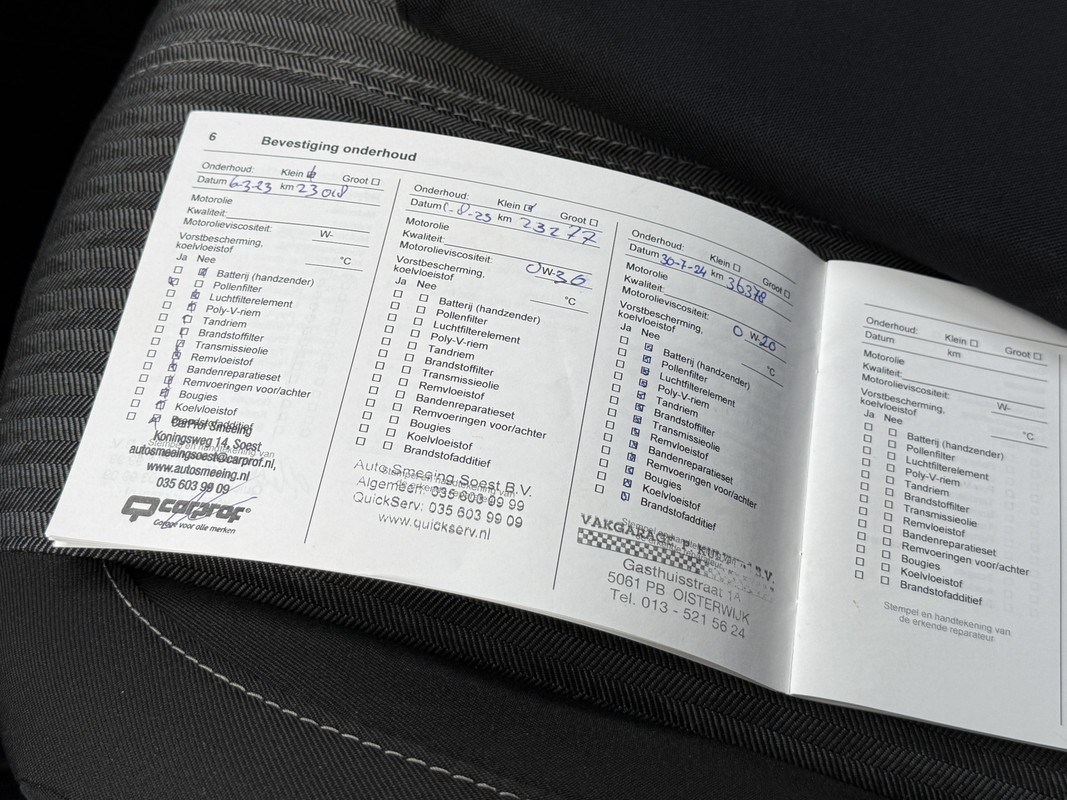 6 Bevestiging onderhoud
Onderhoud: Klein Groot
Datum 6-3-23 km 23018
Motorolie
Kwaliteit:
Motorolieviscositeit: W-
Vorstbescherming,
koelvloeistof °C
Ja Nee
Batterij (handzender)
Pollenfilter
Luchtfilterelement
Poly-V-riem
Tandriem
Brandstoffilter
Transmissieolie
Remvloeistof
Bandenreparatieset
Remvoeringen voor/achter
Bougies
Koelvloeistof
Brandstofadditief
Stempel en handtekening van
CarProf Smeeing
Koningsweg 14, Soest
autosmeeingsoest@carprof.nl,
www.autosmeeing.nl
035 603 99 09
carprof
Garage voor alle merken
Onderhoud: Klein Groot
Datum -8-23 km 23277
Motorolie
Kwaliteit:
Motorolieviscositeit: 0W-30
Vorstbescherming,
koelvloeistof °C
Ja Nee
Batterij (handzender)
Pollenfilter
Luchtfilterelement
Poly-V-riem
Tandriem
Brandstoffilter
Transmissieolie
Remvloeistof
Bandenreparatieset
Remvoeringen voor/achter
Bougies
Koelvloeistof
Brandstofadditief
Stempel en handtekening van
Auto Smeeing Soest B.V.
Algemeen: 035 603 99 99
QuickServ: 035 603 99 09
www.quickserv.nl
Onderhoud: Klein Groot
Datum 30-7-24 km 36378
Motorolie
Kwaliteit:
Motorolieviscositeit: 0 W-20
Vorstbescherming,
koelvloeistof °C
Ja Nee
Batterij (handzender)
Pollenfilter
Luchtfilterelement
Poly-V-riem
Tandriem
Brandstoffilter
Transmissieolie
Remvloeistof
Bandenreparatieset
Remvoeringen voor/achter
Bougies
Koelvloeistof
Brandstofadditief
VAKGARAGE P. B.V.
Gasthuisstraat 1A
5061 PB OISTERWIJK
Tel. 013 - 521 56 24
Onderhoud: Klein Groot
Datum km
Motorolie
Kwaliteit:
Motorolieviscositeit: W-
Vorstbescherming,
koelvloeistof °C
Ja Nee
Batterij (handzender)
Pollenfilter
Luchtfilterelement
Poly-V-riem
Tandriem
Brandstoffilter
Transmissieolie
Remvloeistof
Bandenreparatieset
Remvoeringen voor/achter
Bougies
Koelvloeistof
Brandstofadditief
Stempel en handtekening van
de erkende reparateur.